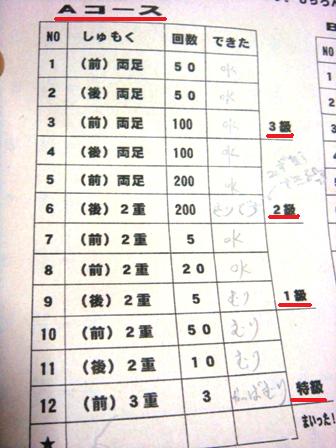 Aコース
NO しゅもく 回数 できた
1 (前)両足 50 ok
2 (後)両足 50 ok
3 (前)両足 100 ok 3級
4 (後)両足 100 ok
5 (前)両足 200 ok
6 (後)2重 200 2級
7 (前)2重 5 ok
8 (前)2重 20 ok
9 (後)2重 5 むり 1級
10 (前)2重 50 むり
11 (後)2重 10 むり
12 (前)3重 3 やっぱむり 特級
★ まいった!